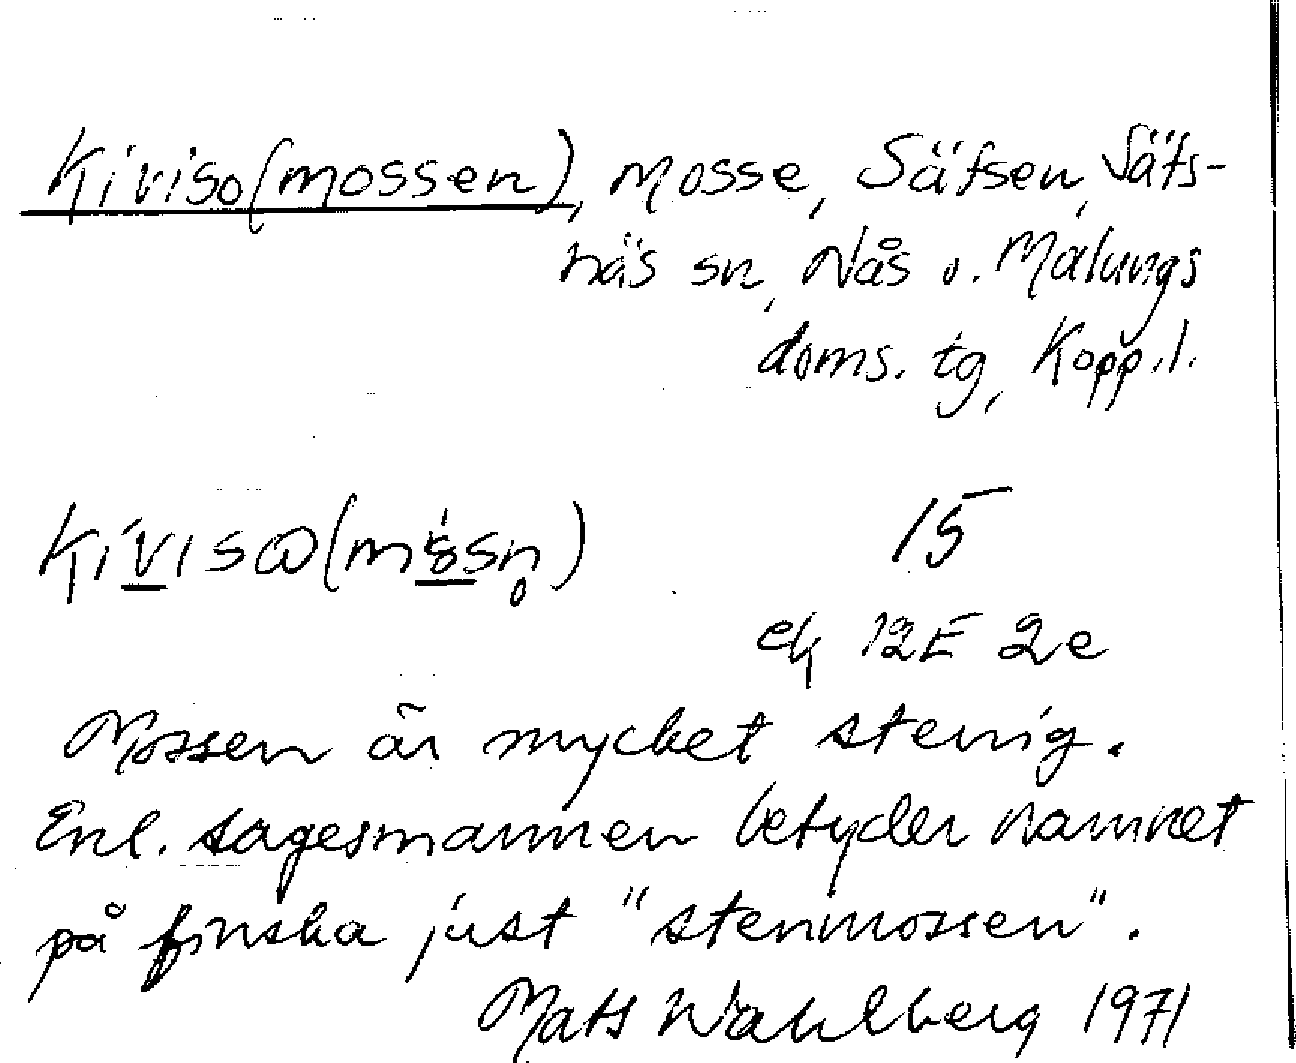 Kiviso(mossen), Mosse, Säfsen, Säfs-
näs sn, Nås o. Malungs
doms. tg, Kopp.l.
15
ek 12E 2e
Mossen är mycket stenig.
Enl. sagesmannen betyder namnet
på finska just "stenmossen".
Mats Wahlberg 1971